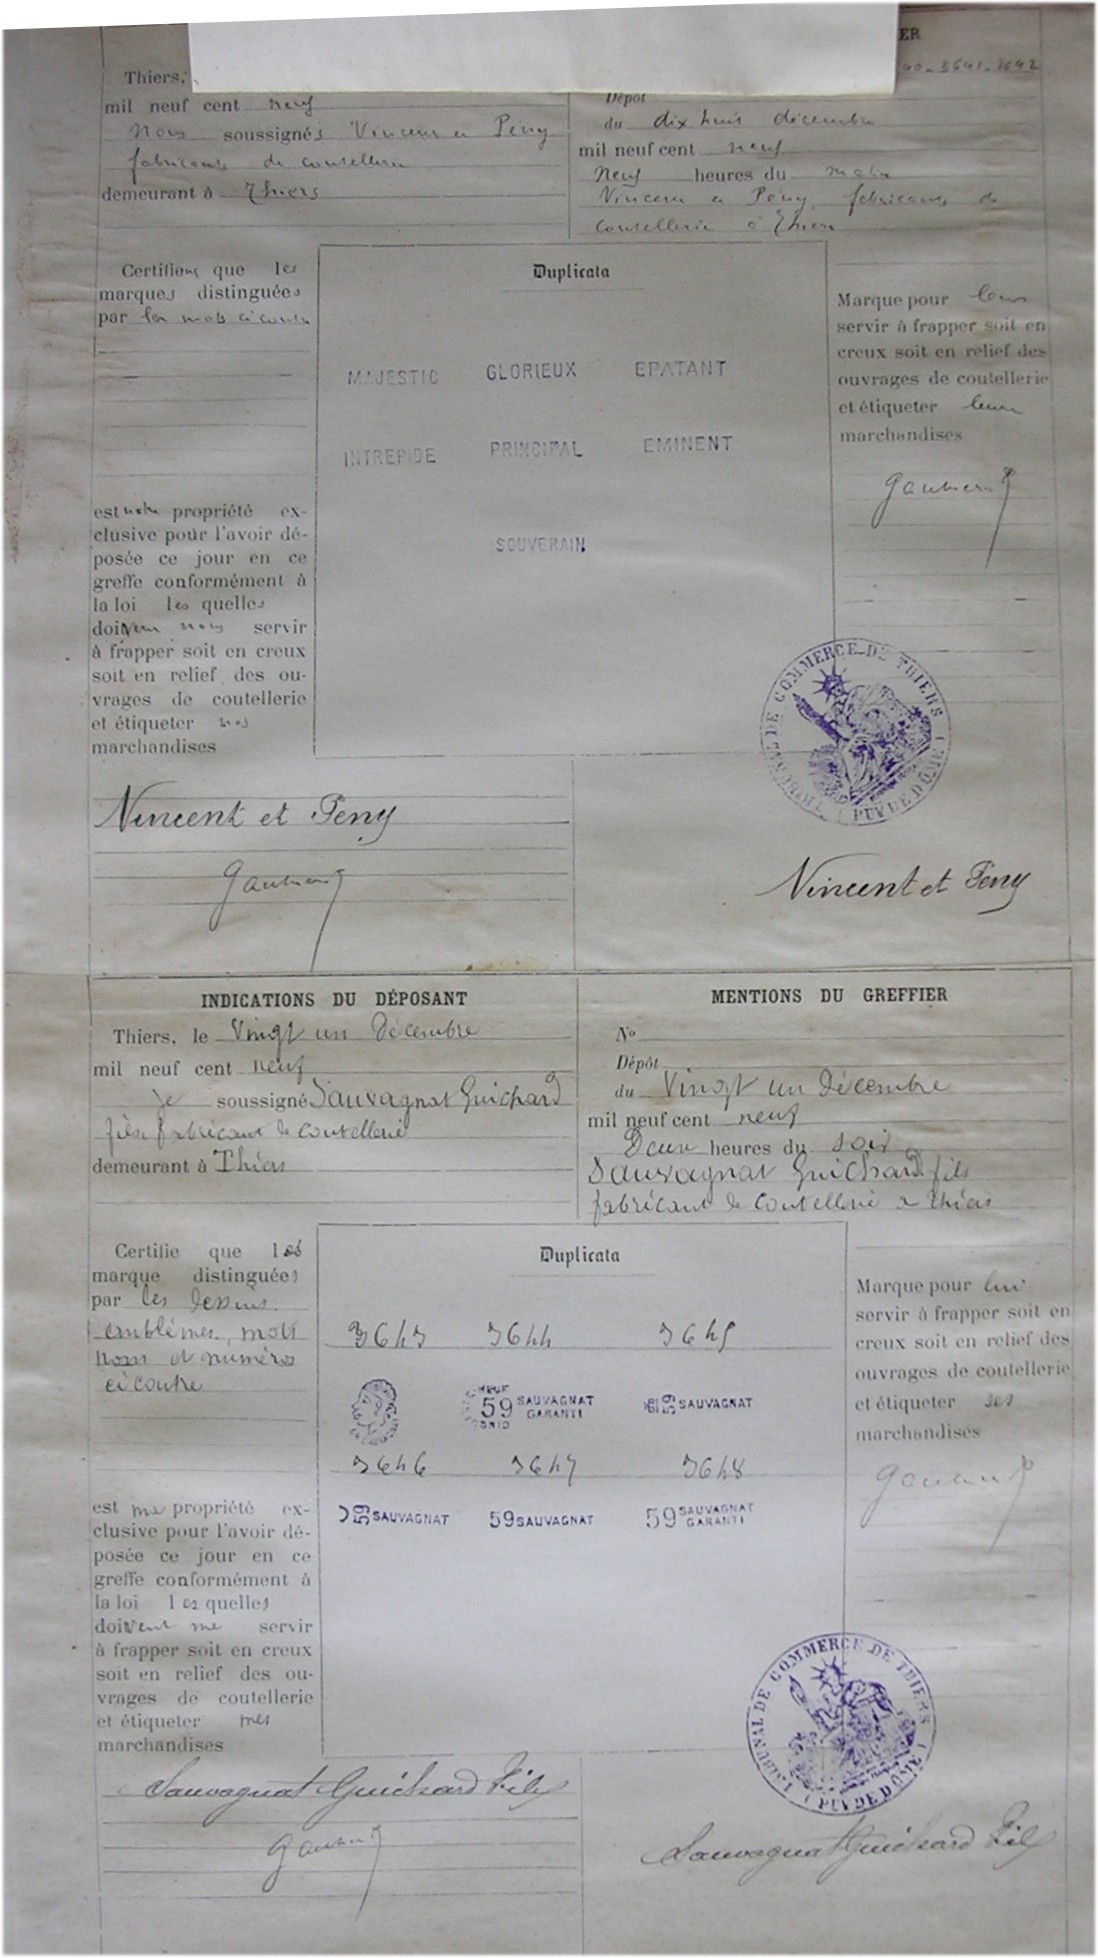 ER
40-3641-3642
Thiers,
mil neuf cent neuf
Nous soussignés Vincent et Pény
fabricants de coutellerie
demeurant à Thiers
Dépôt
du dix huit décembre
mil neuf cent neuf
Neuf heures du matin
Vincent et Pény, fabricants de
coutellerie à Thiers
Certifions que les
marques distinguées
par les mots ci contre
est notre propriété ex-
clusive pour l'avoir dé-
posée ce jour en ce
greffe conformément à
la loi les quelles
doivent nous servir
à frapper soit en creux
soit en relief des ou-
vrages de coutellerie
et étiqueter nos
marchandises
Duplicata
MAJESTIC GLORIEUX EPATANT
INTREPIDE PRINCIPAL EMINENT
SOUVERAIN
Marque pour leur
servir à frapper soit en
creux soit en relief des
ouvrages de coutellerie
et étiqueter leurs
marchandises
TRIBUNAL DE COMMERCE DE THIERS
(PUY DE DÔME)
Vincent et Pény
Vincent et Pény
INDICATIONS DU DÉPOSANT
Thiers, le Vingt un Décembre
mil neuf cent neuf
Je soussigné Sauvagnat Guichard
fils fabricant de coutellerie
demeurant à Thiers
MENTIONS DU GREFFIER
No
Dépôt
du Vingt un Décembre
mil neuf cent neuf
Deux heures du soir
Sauvagnat Guichard fils
fabricant de coutellerie a Thiers
Certifie que les
marque distinguées
par les dessins
emblèmes, mots
Noms et numéros
ci contre
est ma propriété ex-
clusive pour l'avoir dé-
posée ce jour en ce
greffe conformément à
la loi les quelles
doivent me servir
à frapper soit en creux
soit en relief des ou-
vrages de coutellerie
et étiqueter mes
marchandises
Duplicata
3643 3644 3645
59 SAUVAGNAT GARANTI
59 SAUVAGNAT
3646 3647 3648
59 SAUVAGNAT
59 SAUVAGNAT
59 SAUVAGNAT GARANTI
Marque pour lui
servir à frapper soit en
creux soit en relief des
ouvrages de coutellerie
et étiqueter ses
marchandises
TRIBUNAL DE COMMERCE DE THIERS
(PUY DE DÔME)
Sauvagnat Guichard Fils
Sauvagnat Guichard Fils